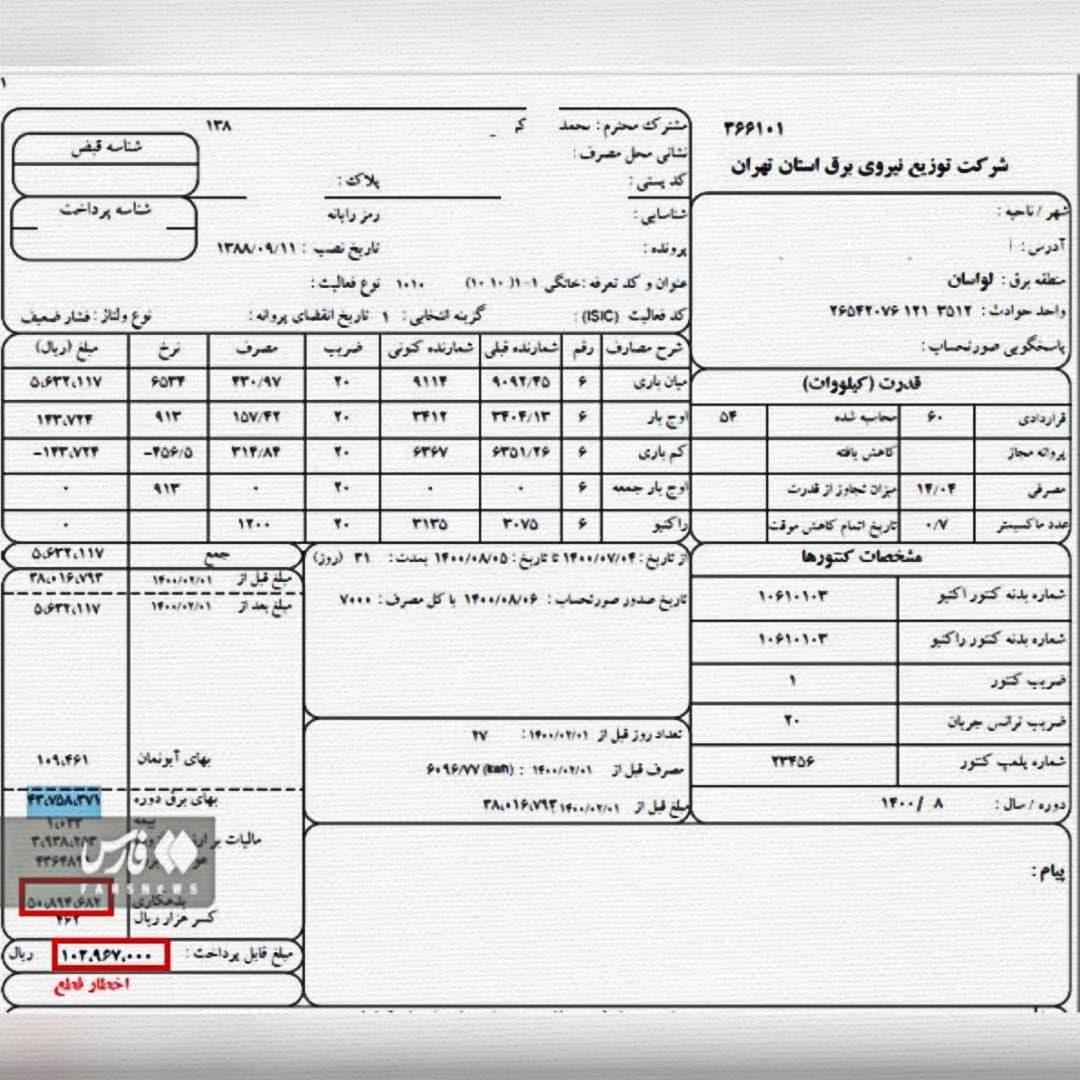 ۳۶۶۱۰۱
شرکت توزیع نیروی برق استان تهران
شهر / ناحیه :
آدرس :
منطقه برق : لواسان
واحد حوادث : ۳۵۱۲ ۱۲۱ ۲۶۵۴۲۰۷۶
پاسخگویی صورتحساب :
قدرت (کیلووات)
قراردادی ۶۰ محاسبه شده ۵۴
پروانه مجاز کاهش یافته
مصرفی ۱۴/۰۴ میزان تجاوز از قدرت
عدد ماکسیمتر ۰/۷ تاریخ اتمام کاهش موقت
مشخصات کنتورها
شماره بدنه کنتور اکتیو ۱۰۶۱۰۱۰۳
شماره بدنه کنتور راکتیو ۱۰۶۱۰۱۰۳
ضریب کنتور ۱
ضریب ترانس جریان ۲۰
شماره پلمپ کنتور ۲۳۴۵۶
دوره / سال : ۸ /۱۴۰۰
مشترک محترم : محمد ک ۱۳۸
نشانی محل مصرف :
کد پستی : پلاک :
شناسایی : رمز رایانه
پرونده : تاریخ نصب : ۱۳۸۸/۰۹/۱۱
عنوان و کد تعرفه :خانگی ۱-۱( ۱۰ ۱۰) ۱۰۱۰ نوع فعالیت :
کد فعالیت (ISIC) : گزینه انتخابی : ۱ تاریخ انقضای پروانه : نوع ولتاژ : فشار ضعیف
شناسه قبض
شناسه پرداخت
شرح مصارف رقم شمارنده قبلی شمارنده کنونی ضریب مصرف نرخ مبلغ (ریال)
میان باری ۶ ۹۰۹۲/۴۵ ۹۱۱۴ ۲۰ ۴۳۰/۹۷ ۶۵۳۴ ۵،۶۳۲،۱۱۷
اوج بار ۶ ۳۴۰۴/۱۳ ۳۴۱۲ ۲۰ ۱۵۷/۴۲ ۹۱۳ ۱۴۳،۷۲۴
کم باری ۶ ۶۳۵۱/۲۶ ۶۳۶۷ ۲۰ ۳۱۴/۸۴ ۴۵۶/۵- ۱۴۳،۷۲۴-
اوج بار جمعه ۶ ۰ ۰ ۲۰ ۰ ۹۱۳ ۰
راکتیو ۶ ۳۰۷۵ ۳۱۳۵ ۲۰ ۱۲۰۰ ۰
جمع ۵،۶۳۲،۱۱۷
از تاریخ : ۱۴۰۰/۰۷/۰۴ تا تاریخ : ۱۴۰۰/۰۸/۰۵ بمدت : ۳۱ (روز)
تاریخ صدور صورتحساب : ۱۴۰۰/۰۸/۰۶ با کل مصرف : ۷۰۰۰
تعداد روز قبل از ۱۴۰۰/۰۲/۰۱ : ۲۷
مصرف قبل از ۱۴۰۰/۰۲/۰۱ : (kwh) ۶۰۹۶/۷۷
مبلغ قبل از ۱۴۰۰/۰۲/۰۱ ۳۸،۰۱۶،۷۹۳
پیام :
مبلغ قبل از ۱۴۰۰/۰۲/۰۱ ۳۸،۰۱۶،۷۹۳
مبلغ بعد از ۱۴۰۰/۰۲/۰۱ ۵،۶۳۲،۱۱۷
بهای آبونمان ۱۰۹،۴۶۱
بهای برق دوره ۴۳،۷۵۸،۳۷۱
بیمه
مالیات بر
فارس
FARSNEWS
بدهکاری ۵۰،۸۹۴،۶۸۲
کسر هزار ریال ۲۶۲
مبلغ قابل پرداخت : ۱۰۲،۹۶۷،۰۰۰ ریال
اخطار قطع